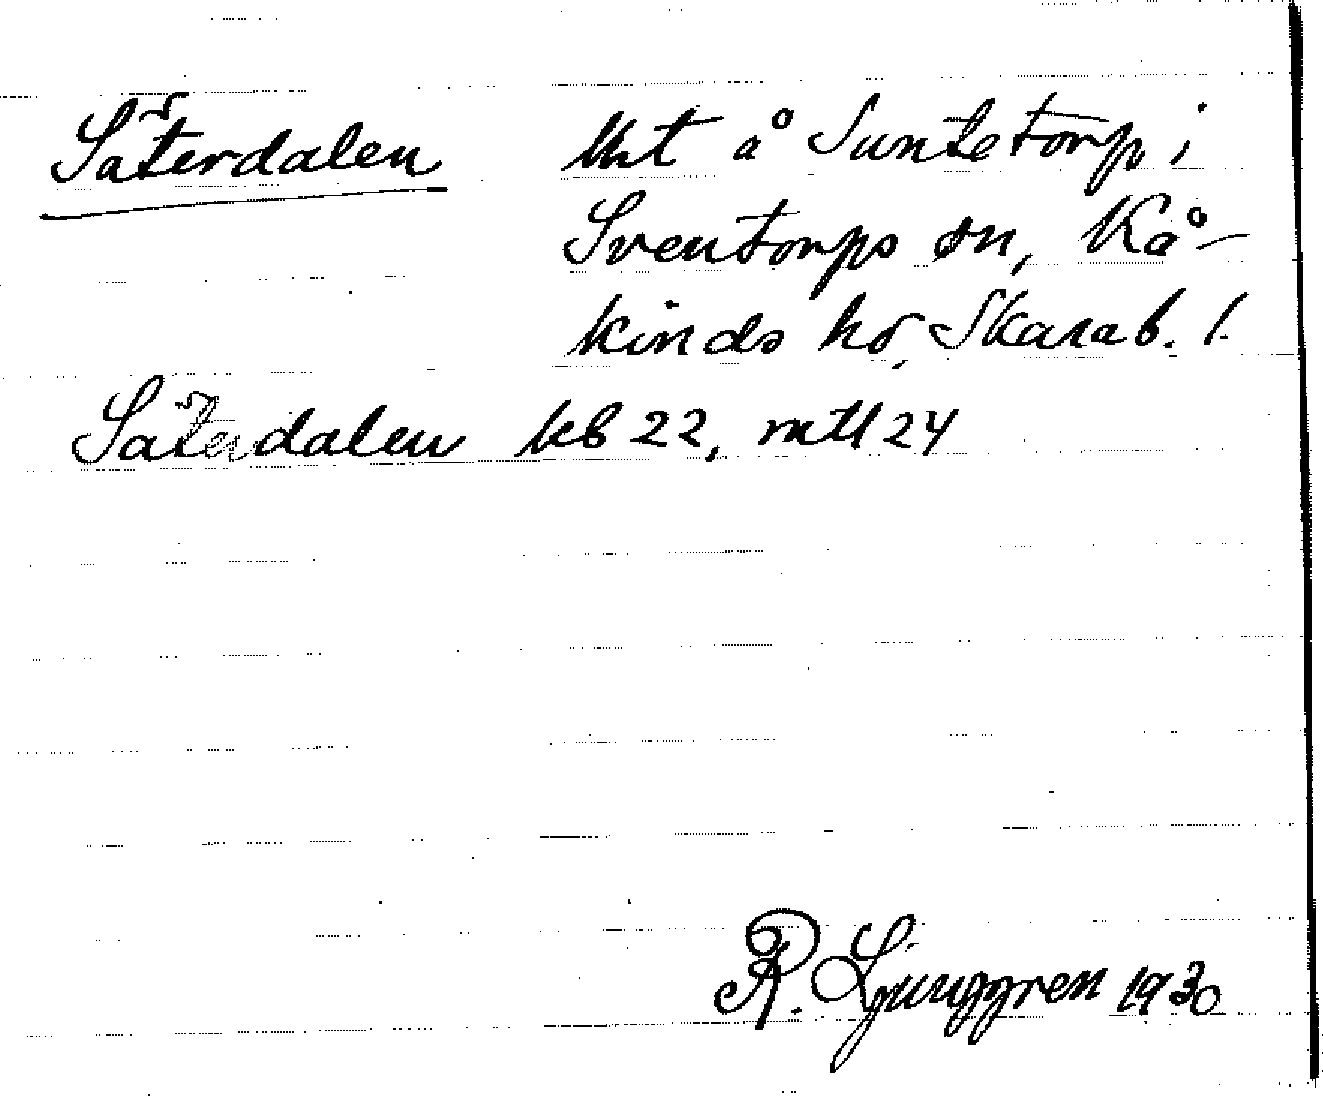 Säterdalen lht å Suntetorp i
Sventorps sn, Kå-
kinds hd, Skarab. l.
Säterdalen kb 22, mtl 24
R. Ljunggren 1930